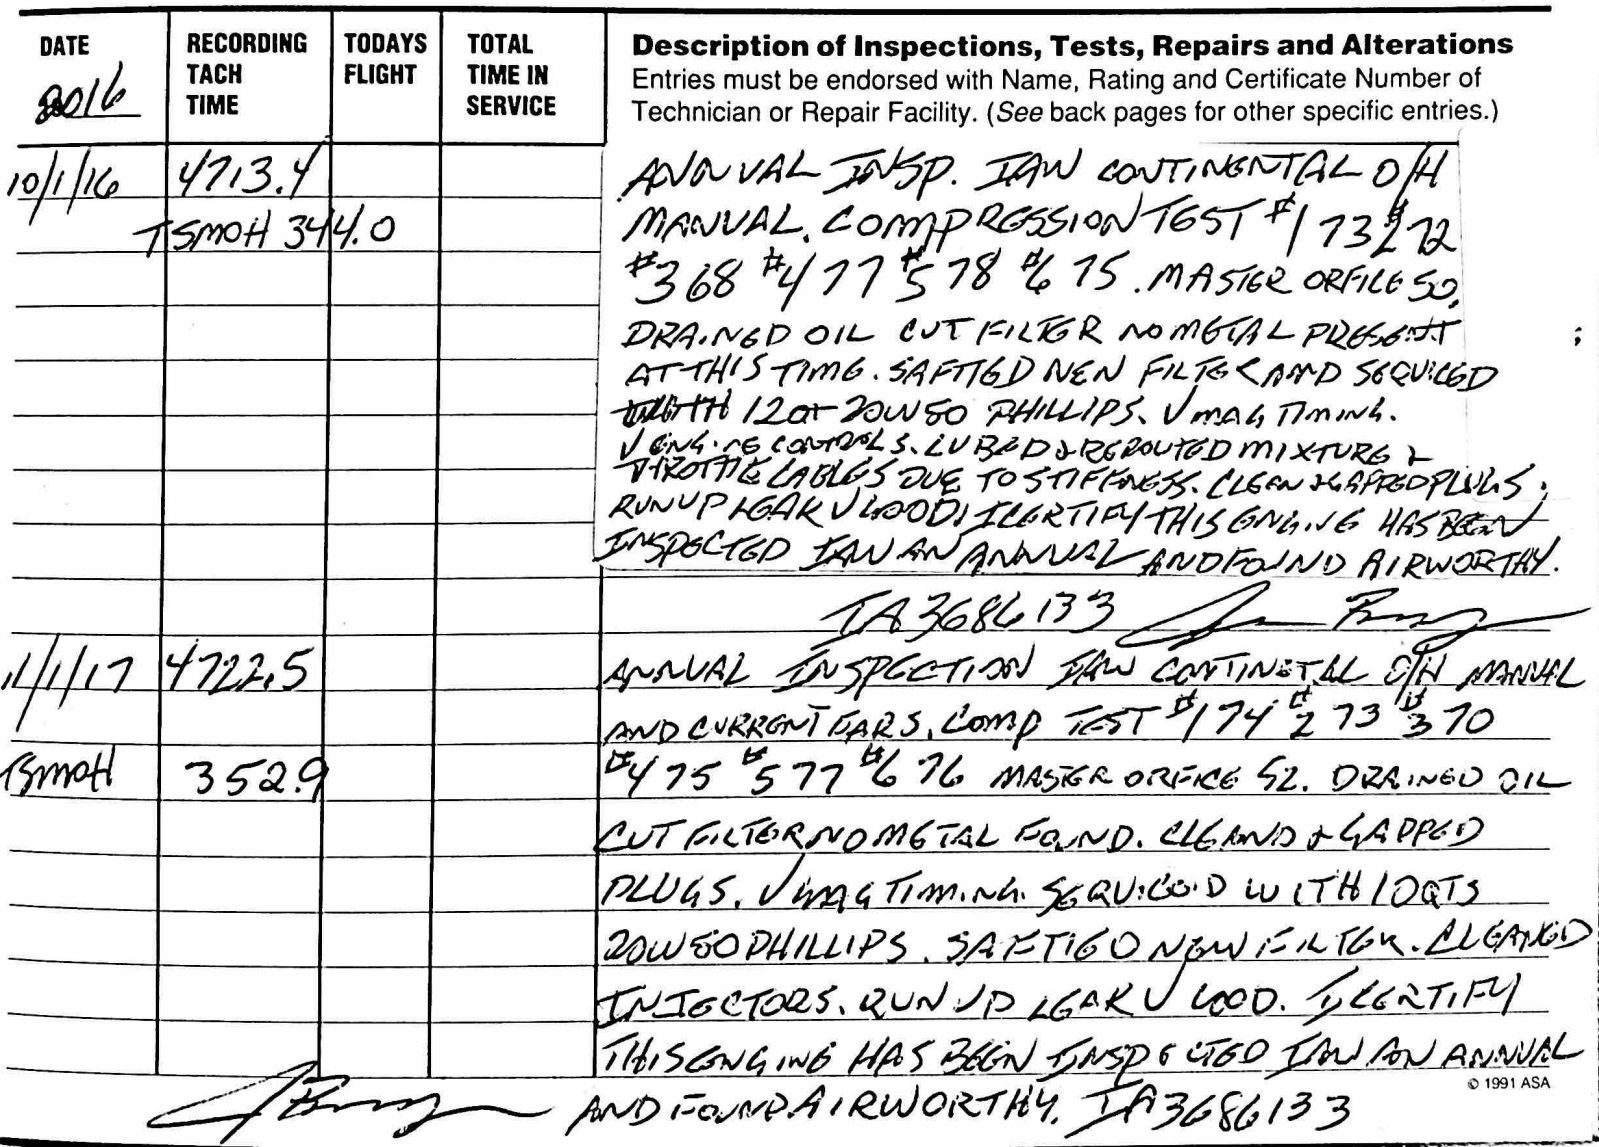 DATE
2016
RECORDING
TACH
TIME
TODAYS
FLIGHT
TOTAL
TIME IN
SERVICE
Description of Inspections, Tests, Repairs and Alterations
Entries must be endorsed with Name, Rating and Certificate Number of
Technician or Repair Facility. (See back pages for other specific entries.)
10/1/16 4713.4 ANNUAL INSP. IAW CONTINENTAL O/H
TSMOH 344.0 MANUAL. COMPRESSION TEST #1 73 #2 72
#3 68 #4 77 #5 78 #6 75. MASTER ORFICE 50.
DRAINED OIL CUT FILTER NO METAL PRESENT
AT THIS TIME. SAFTIED NEW FILTER AND SEQUICED
WITH 12 QT 20W50 PHILLIPS. √ MAG TIMING.
√ ENGINE CONTROLS. LUBED & REROUTED MIXTURE &
THROTTLE CABLES DUE TO STIFFNESS. CLEAN & GAPPED PLUGS.
RUNUP LEAK √ GOOD. I CERTIFY THIS ENGINE HAS BEEN
INSPECTED IAW AN ANNUAL AND FOUND AIRWORTHY.
IA 3686133
11/1/17 4722.5 ANNUAL INSPECTION IAW CONTINETAL O/H MANUAL
AND CURRENT FARS. COMP TEST #1 74 #2 73 #3 70
TSMOH 352.9 #4 75 #5 77 #6 76 MASTER ORFICE 52. DRAINED OIL
CUT FILTER NO METAL FOUND. CLEAND & GAPPED
PLUGS. √ MAG TIMING. SEQUICED WITH 10 QTS
20W50 PHILLIPS. SAFTIED NEW FILTER. CLEANED
INJECTORS. RUN UP LEAK √ GOOD. I CERTIFY
THIS ENGINE HAS BEEN INSPECTED IAW AN ANNUAL
© 1991 ASA
AND FOUND AIRWORTHY. IA 3686133